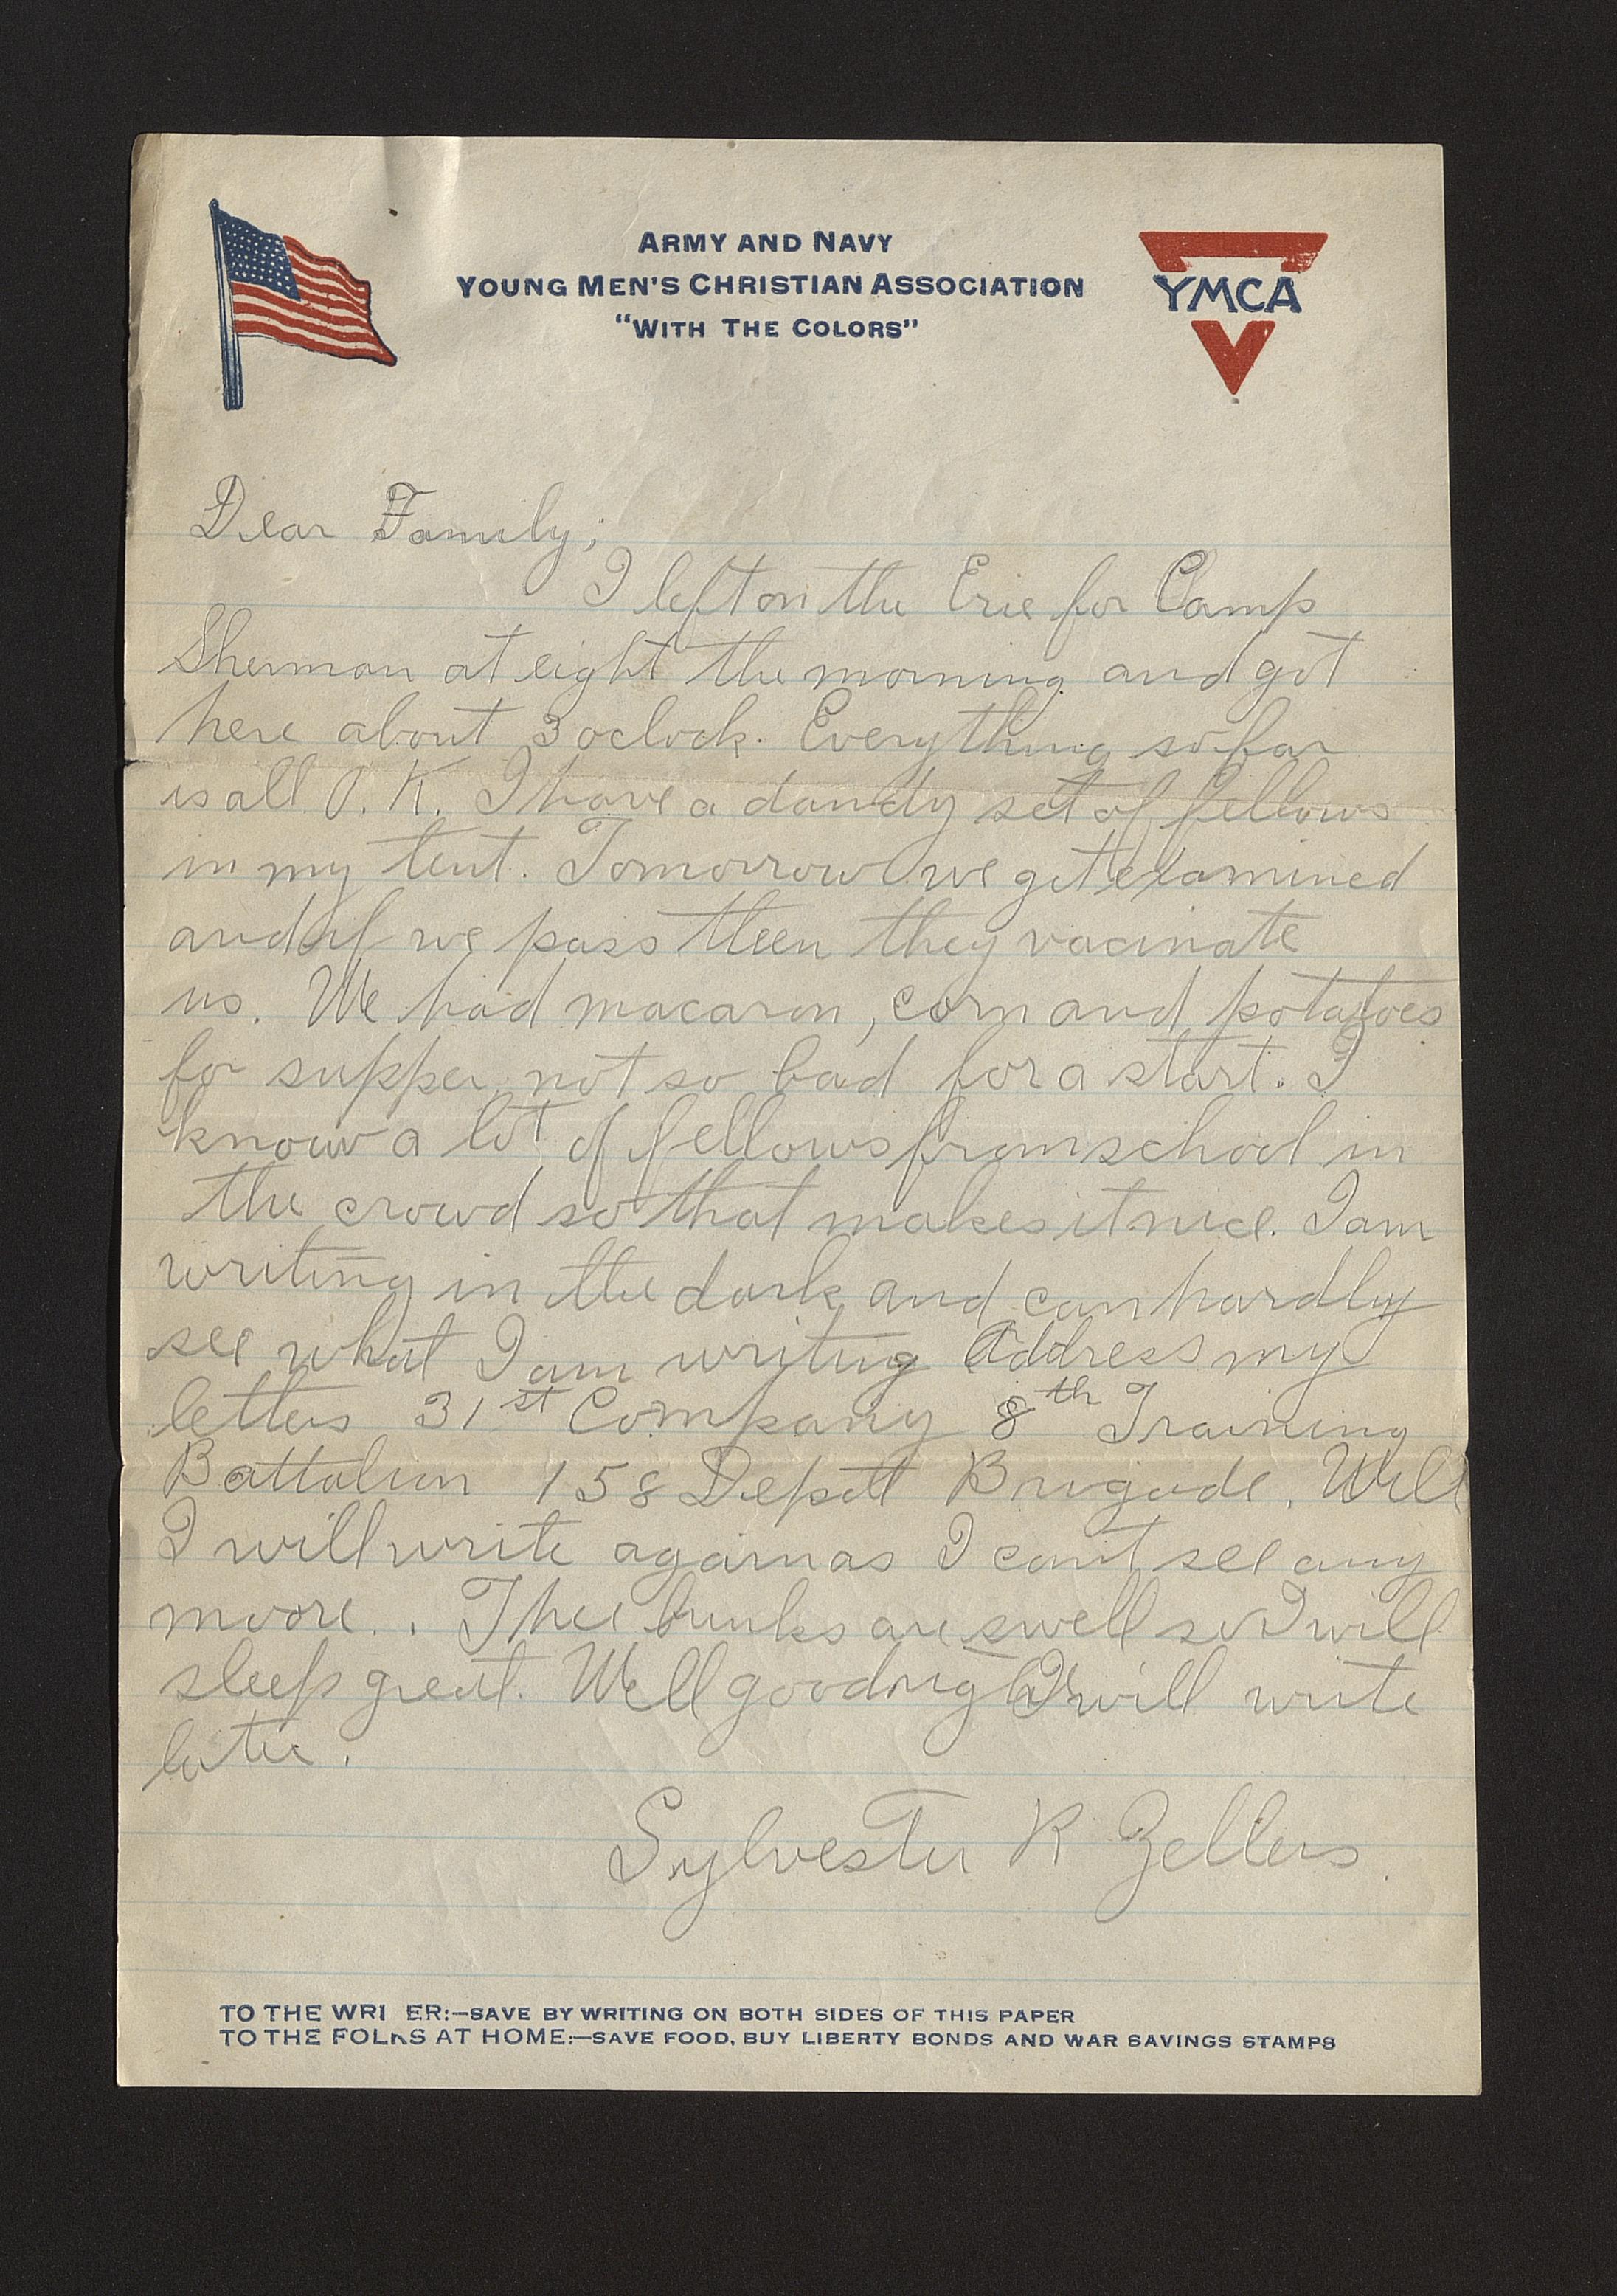 ARMY AND NAVY
YOUNG MEN'S CHRISTIAN ASSOCIATION
"WITH THE COLORS"
YMCA
Dear Family;
I left on the Erie for Camp
Sherman at eight the morning and got
here about 3 oclock. Everything so far
is all O.K. I have a dandy set of fellows
in my tent. Tomorrow we get examined
and if we pass then they vacinate
us. We had macaron, corn and potatoes
for supper not so bad for a start. I
know a lot of fellows from school in
the crowd so that makes it nice. I am
writing in the dark and can hardly
see what I am writing Address my
letters 31st Company 8th Training
Battalion 158 Depot Brigade. Well
I will write again as I cant see any
moore.. The bunks are swell so I will
sleep great. Well goodnight I will write
later.
Sylvester R Zellers.
TO THE WRI ER:—SAVE BY WRITING ON BOTH SIDES OF THIS PAPER
TO THE FOLKS AT HOME:—SAVE FOOD, BUY LIBERTY BONDS AND WAR SAVINGS STAMPS